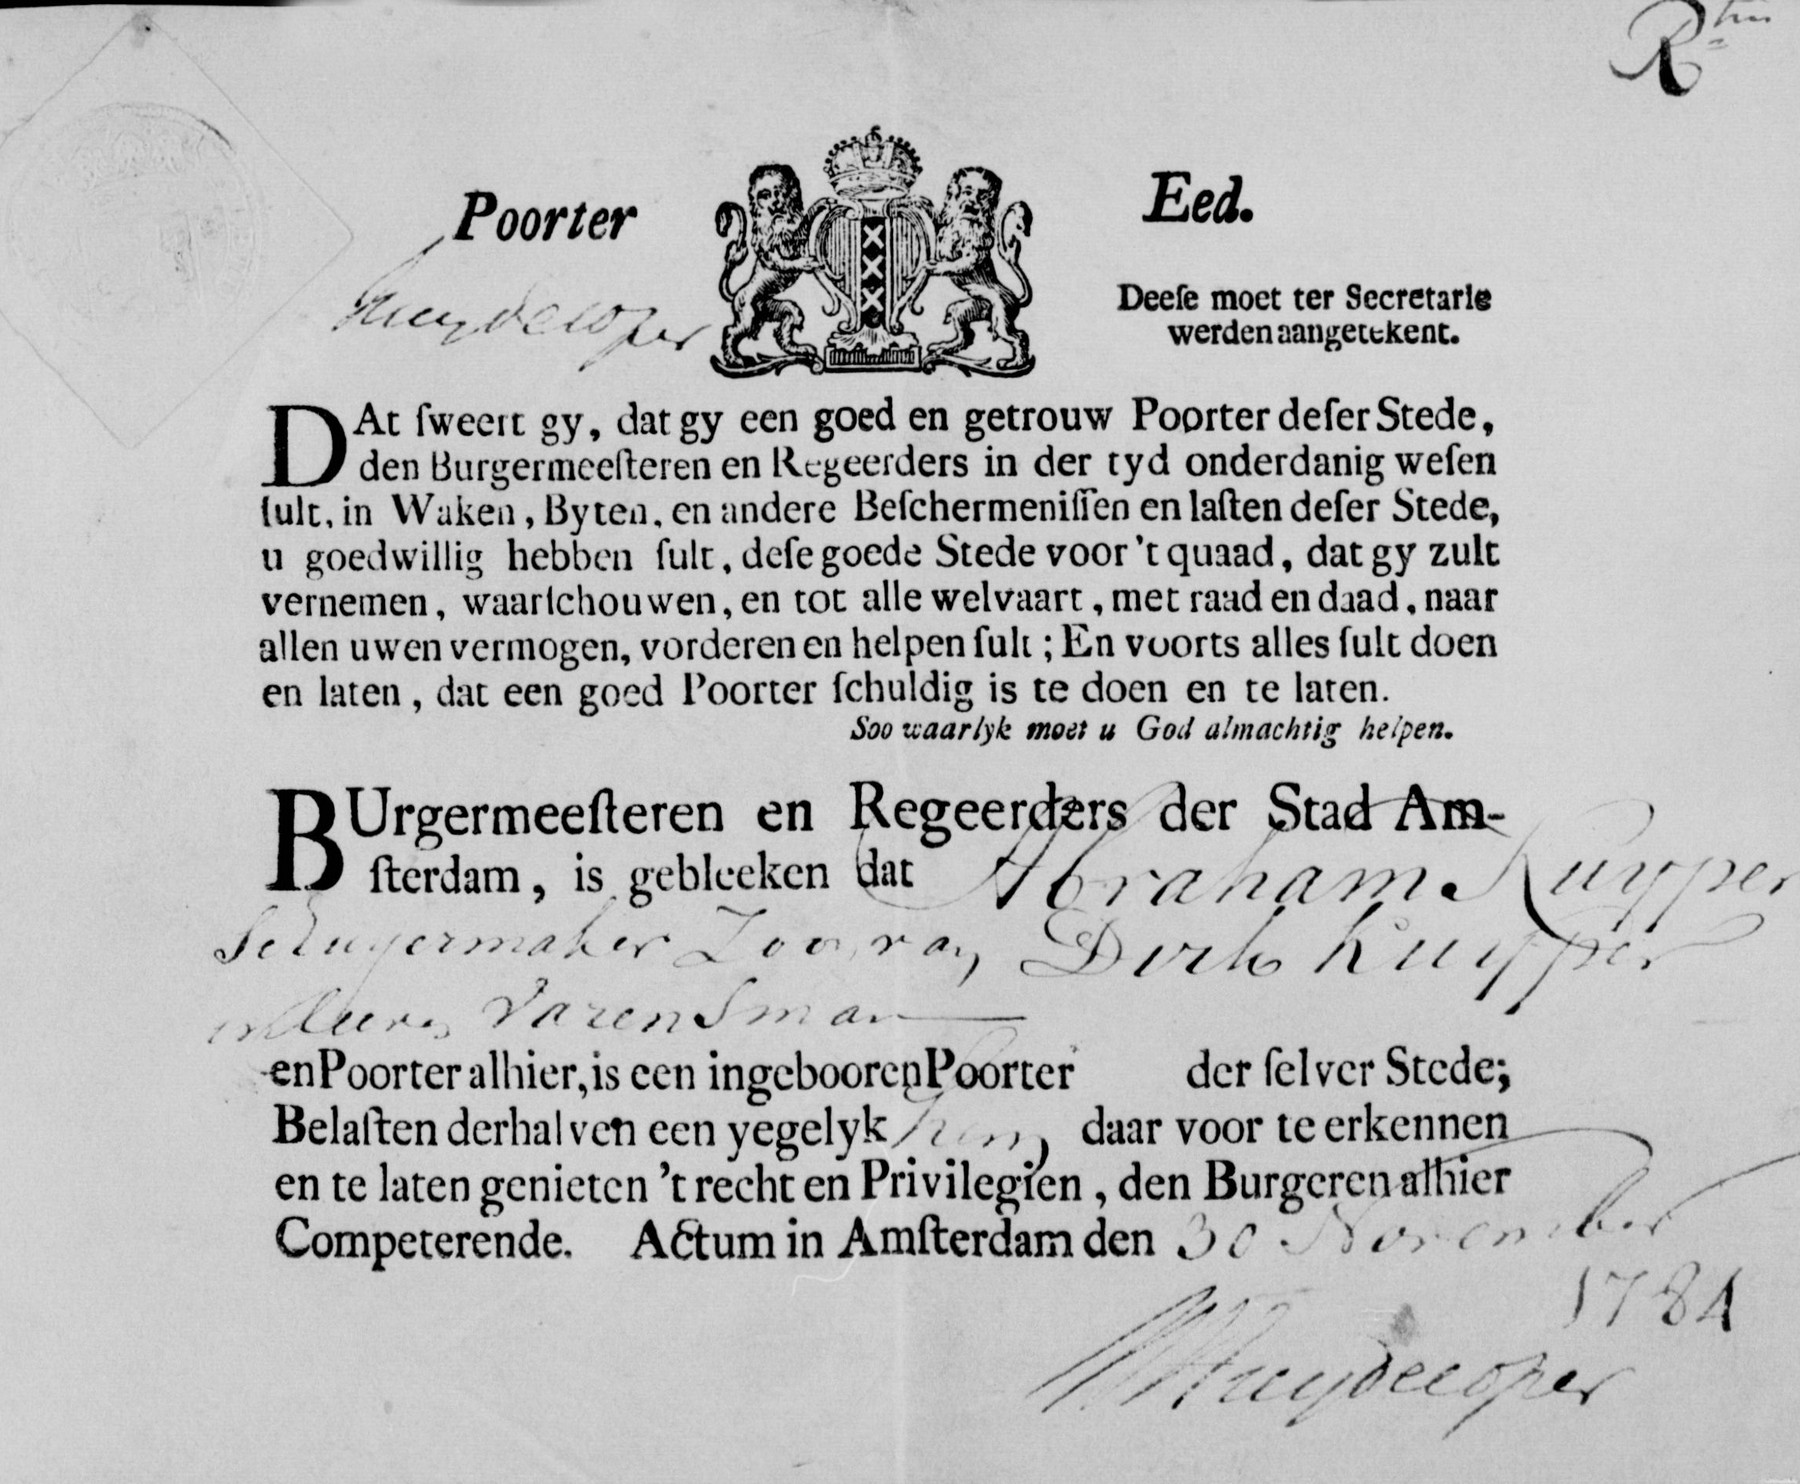 R
Poorter Eed.
Huydecoper
Deeſe moet ter Secretarie
werden aangetekent.
DAt ſweert gy, dat gy een goed en getrouw Poorter deſer Stede,
den Burgermeeſteren en Regeerders in der tyd onderdanig weſen
ſult, in Waken, Byten, en andere Beſchermeniſſen en laſten deſer Stede,
u goedwillig hebben ſult, deſe goede Stede voor 't quaad, dat gy zult
vernemen, waarſchouwen, en tot alle welvaart, met raad en daad, naar
allen uwen vermogen, vorderen en helpen ſult; En voorts alles ſult doen
en laten, dat een goed Poorter ſchuldig is te doen en te laten.
Soo waarlyk moet u God almachtig helpen.
BUrgermeeſteren en Regeerders der Stad Am-
ſterdam, is gebleeken dat Abraham Kuyper
Schuyermaker Zoon van Dirk Kuyper
in Varensman
en Poorter alhier, is een ingebooren Poorter der ſelver Stede;
Belaſten derhalven een yegelyk hem daar voor te erkennen
en te laten genieten 't recht en Privilegien, den Burgeren alhier
Competerende. Actum in Amſterdam den 30 November
1784
Huydecoper